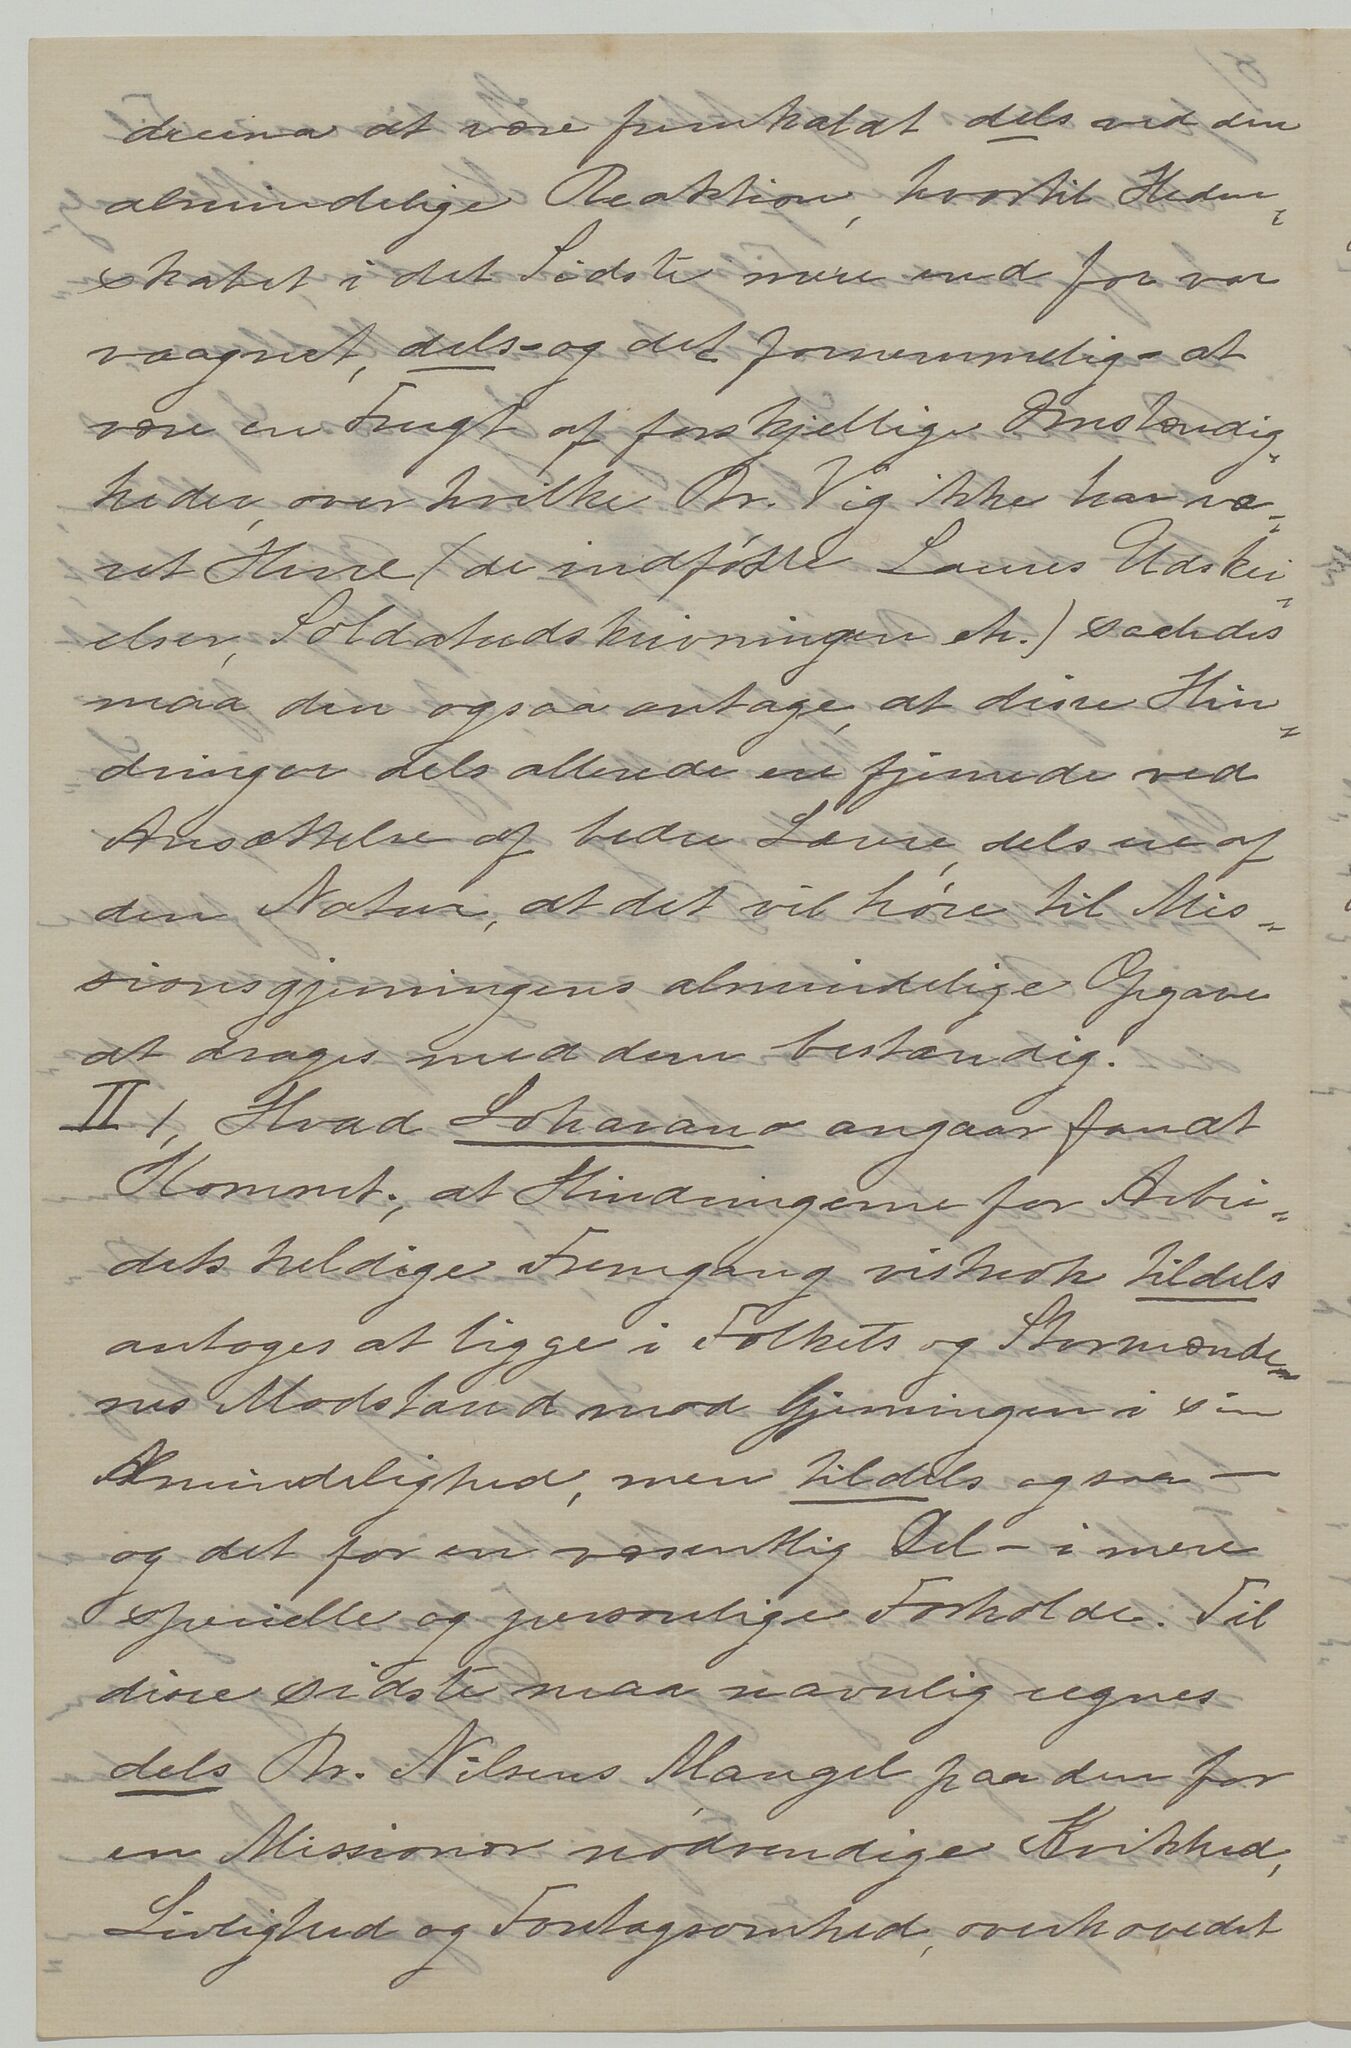 drina at være fremkaldt dels ved den
almindelige Reaktion, hvortil Heden-
skabet i det Sidste mere end før var
vaagnet, dels - og det fornemmelig - at
være en Frugt af forskjellige Omstændig-
heder, over hvilke Br. Vig ikke har væ-
ret Herre (de indfødte Læreres Udskei-
elser, Soldatudskrivningen etc.) saaledes
maa den ogsaa antage, at disse Hin-
dringer dels allerede ere fjernede ved
Ansættelse af bedre Lærere, dels ere af
den Natur, at det vil høre til Mis-
sionsgjerningens almindelige Opgave
at drages med dem bestændig.
II/, Hvad Loharano angaar fandt
Kommt., at Hindringerne for Arbei-
dets heldige Fremgang vistnok tildels
antoges at ligge i Folkets og Stormænde-
nes Modstand mod Gjerningen i sin
Almindelighed, men tildels ogsaa -
og det for en væsentlig Del - i mere
specielle og personlige Forholde. Til
disse sidste maa navnlig regnes
dels Br. Nilsens Mangel paa den for
en Missionær nødvendige Kvikhed,
Livlighed og Foretagsomhed, overhovedet